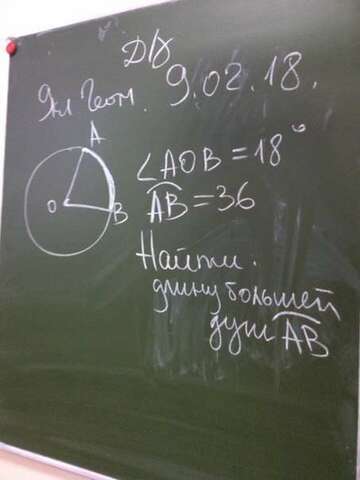 Д/З
9кл Геом. 9.02.18.
A
O
B
∠AOB = 18°
⌒AB = 36
Найти
длину большей
дуги ⌒AB